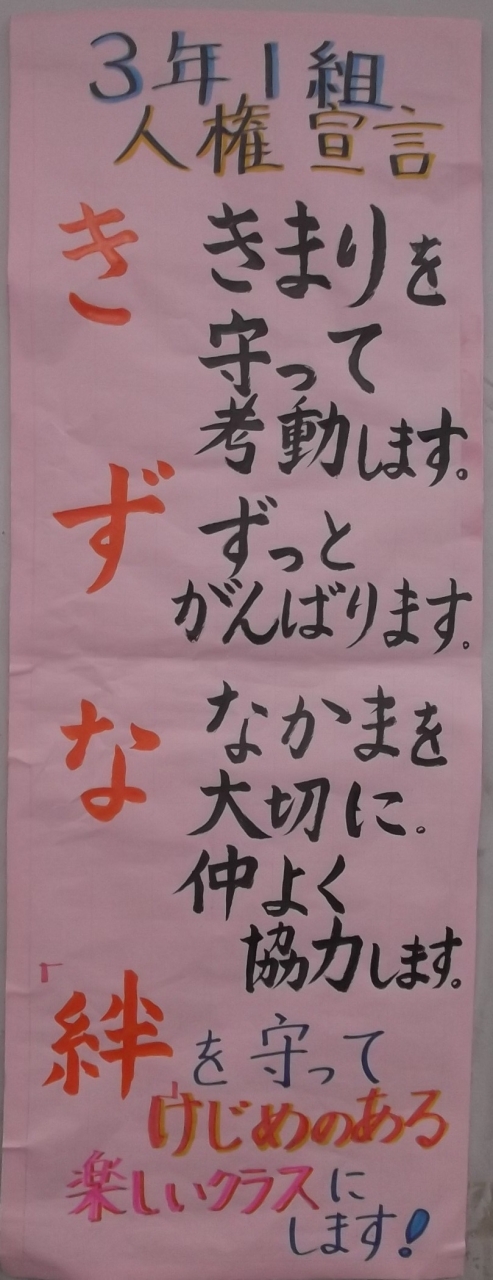 3年1組
人権宣言
き
きまりを
守って
考動します。
ず
ずっと
がんばります。
な
なかまを
大切に。
仲よく
協力します。
絆を守って
けじめのある
楽しいクラスに
します!